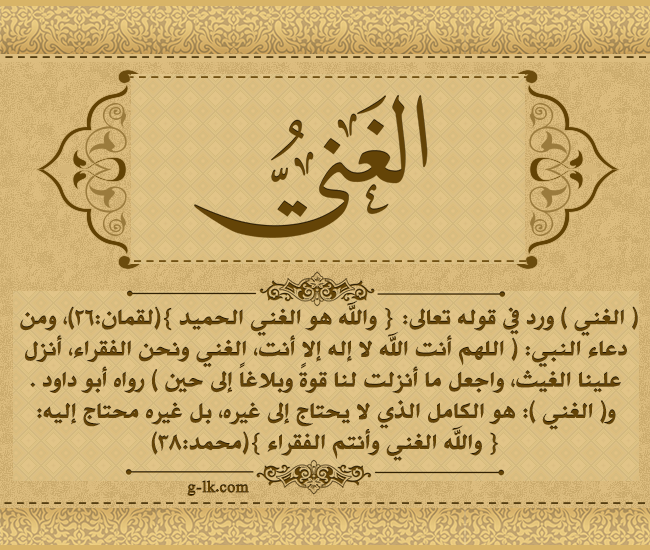 الغنيُّ
( الغني ) ورد في قوله تعالى: { والله هو الغني الحميد }(لقمان:٢٦)، ومن
دعاء النبي: ( اللهم أنت الله لا إله إلا أنت، الغني ونحن الفقراء، أنزل
علينا الغيث، واجعل ما أنزلت لنا قوةً وبلاغاً إلى حين ) رواه أبو داود .
و( الغني ): هو الكامل الذي لا يحتاج إلى غيره، بل غيره محتاج إليه:
{ والله الغني وأنتم الفقراء }(محمد:٣٨)
g-lk.com